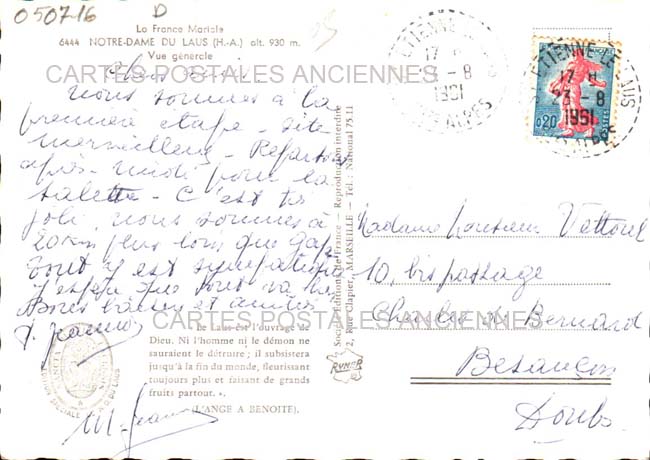 050716 D
La France Mariale
6444 NOTRE-DAME DU LAUS (H.-A.) alt. 930 m.
Vue générale
CARTES POSTALES ANCIENNES
nous sommes à la
première étape - site
merveilleux - Repartons
après-midi pour la
Salette - C'est très
joli. nous sommes à
20 km plus loin que Gap
tout y est sympathique
J'espère que tout va bien
Bons baisers et amitiés
CARTES POSTALES ANCIENNES
« Le Laus est l'ouvrage de
Dieu. Ni l'homme ni le démon ne
sauraient le détruire ; il subsistera
jusqu'à la fin du monde, fleurissant
toujours plus et faisant de grands
fruits partout. »,
(L'ANGE A BENOITE).
Société Editions de France - Reproduction interdite
2, Rue Clapier, MARSEILLE - Tél. : National 75.11
17 H
- 8
1961
ALPES
ETIENNE-LE-LAUS
17 H
23 - 8
1961
ALPES
0,20
POSTES
Madame Monsieur Vettorel
10, bis passage
Charles de Bernard
Besançon
Doubs